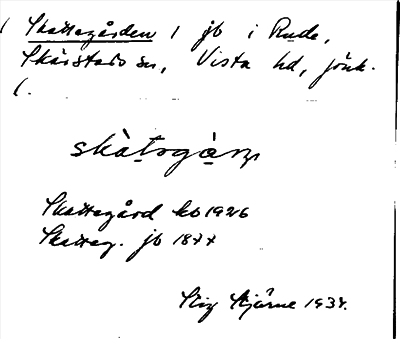 Skattegården 1 jb i Rude,
Skärstads sn, Vista hd, Jönk.
l.
skàtɘgå̀ɳ
Skattegård kb 1926
Skatteg. jb 1877
Stig Stjärne 1934.